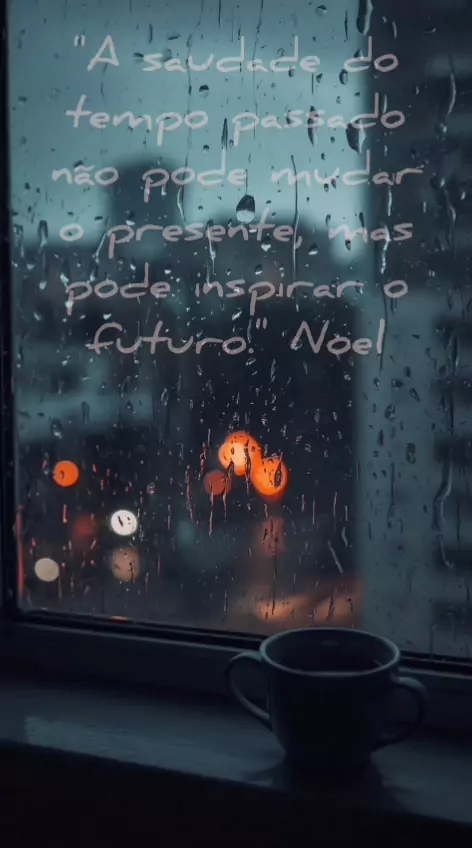 "A saudade do
tempo passado
não pode mudar
o presente, mas
pode inspirar o
futuro." Noel